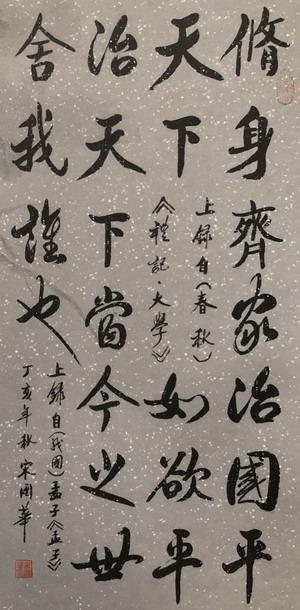 脩身齊家治國平
天下
上録自(春秋)
《禮記·大學》
如欲平
治天下當今之世
舍我誰也
上録自(戰國)孟子《孟子》
丁亥年秋 宋開華